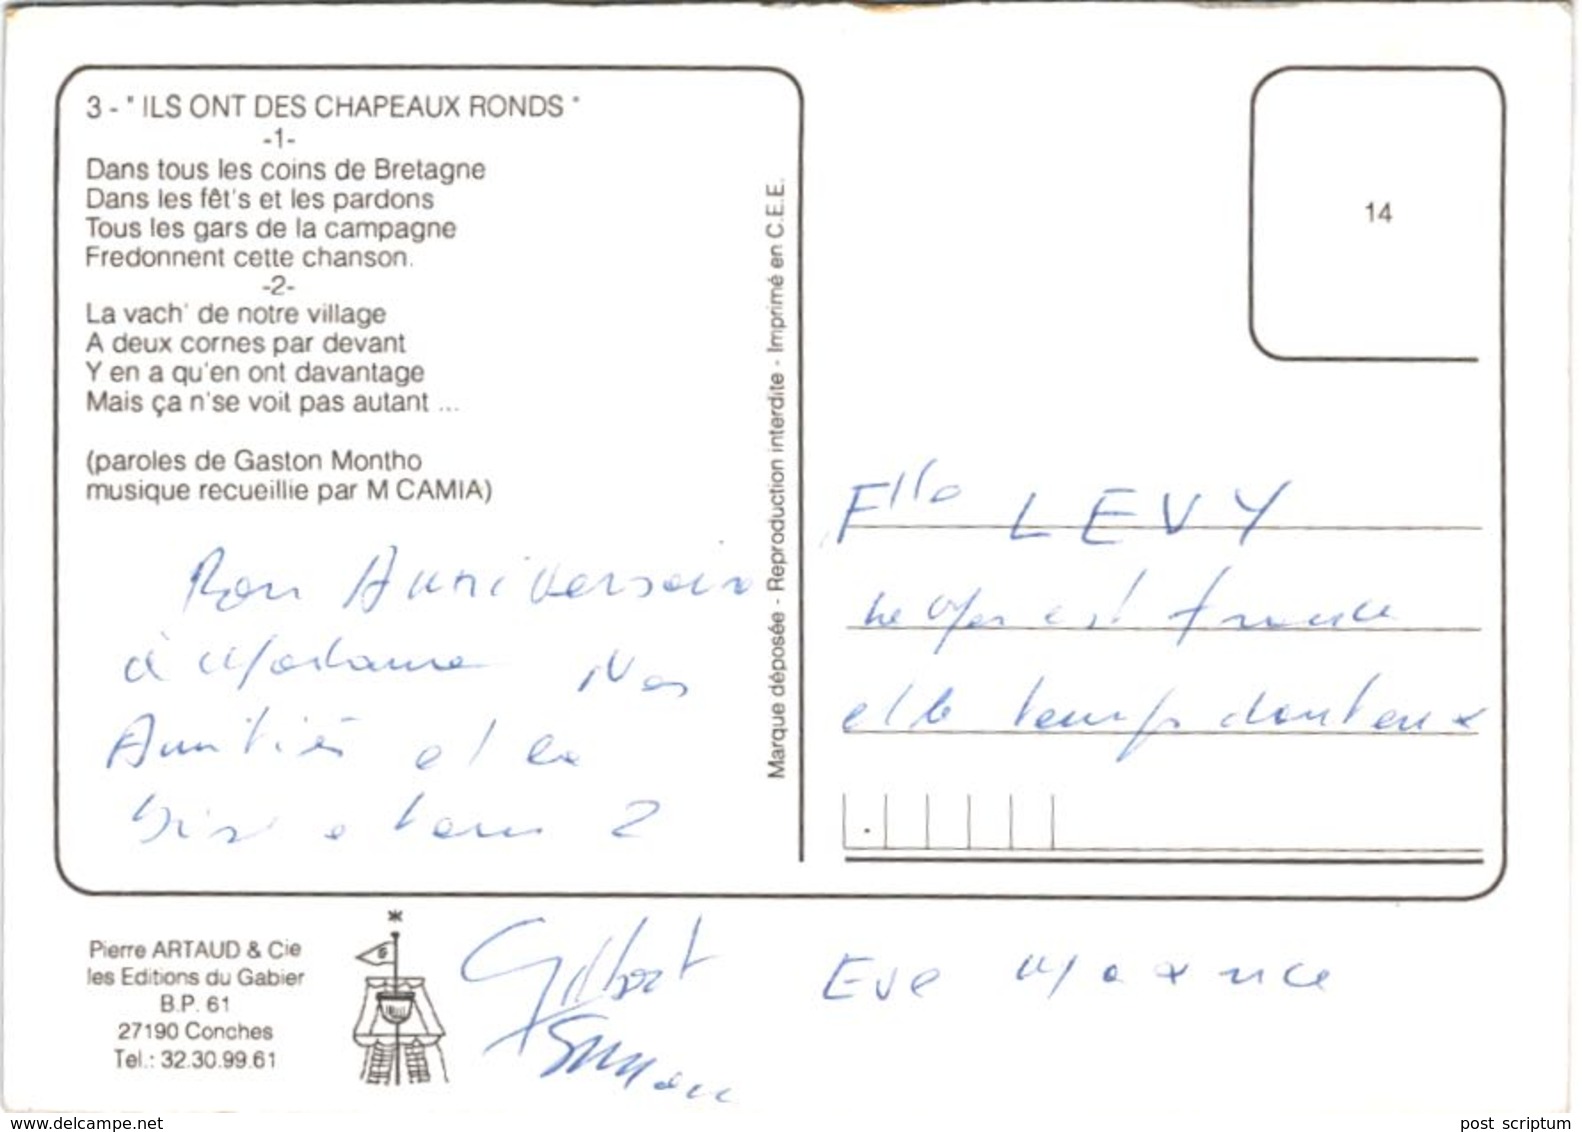 3 - " ILS ONT DES CHAPEAUX RONDS "
-1-
Dans tous les coins de Bretagne
Dans les fêt's et les pardons
Tous les gars de la campagne
Fredonnent cette chanson.
-2-
La vach' de notre village
A deux cornes par devant
Y en a qu'en ont davantage
Mais ça n'se voit pas autant ...
(paroles de Gaston Montho
musique recueillie par M CAMIA)
Bon Anniversaire
à Madame Nos
Amitiés et
2
Marque déposée - Reproduction interdite - Imprimé en C.E.E.
14
Flle LEVY
et le temps douteux
Pierre ARTAUD & Cie
les Editions du Gabier
B.P. 61
27190 Conches
Tel.: 32.30.99.61
G
Gilbert
Simone
Eve Maxence
www.delcampe.net
post scriptum